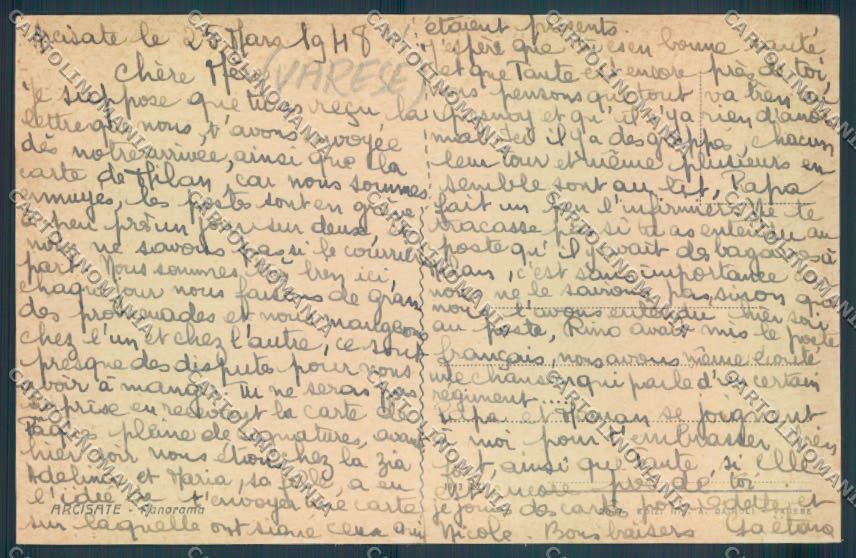 Arcisate le 25 Mars 1948
(VARESE)
Chère
je suppose que tu as reçu la
lettre que nous t'avons envoyée
dès notre arrivée, ainsi que la
carte de Milan, car nous sommes
ennuyés, les postes sont en grève
à peu près un jour sur deux,
nous ne savons pas si le courrier
part. Nous sommes très bien ici,
chaque jour nous faisons de gran
des promenades et nous mangeons
chez l'un et chez l'autre, ce sont
presque des disputes pour nous
avoir à manger. Tu ne seras pas
surprise en recevant la carte de
Pâques pleine de signatures, avant
hier soir nous étions chez la zia
Adelina et Maria, sa fille, a eu
l'idée de t'envoyer une carte
sur laquelle ont signé ceux qui
ARCISATE - Panorama
étaient présents.
J'espère que tu es en bonne santé
et que Tante est encore près de toi,
nous pensons que tout va bien à
et qu'il n'y a rien d'anor
mal. Ici il y a des grippes, chacun
leur tour et même plusieurs en
semble sont au lit, Papa
fait un peu l'infirmier. Ne te
tracasse pas si tu as entendu au
poste qu'il y avait des bagarres à
Milan, c'est sans importance
nous ne le savions pas, sinon que
nous l'avons entendu hier soir
au poste, Rino avait mis le poste
français, nous avons même écouté
une chanson qui parle d'un certain
régiment ...
Papa et Maman se joignent
à moi pour t'embrasser bien
fort, ainsi que Tante, si Elle
est encore près de toi.
je joins des cartes pour Odette et
Nicole. Bons baisers Gaëtano
CARTOLINOMANIA